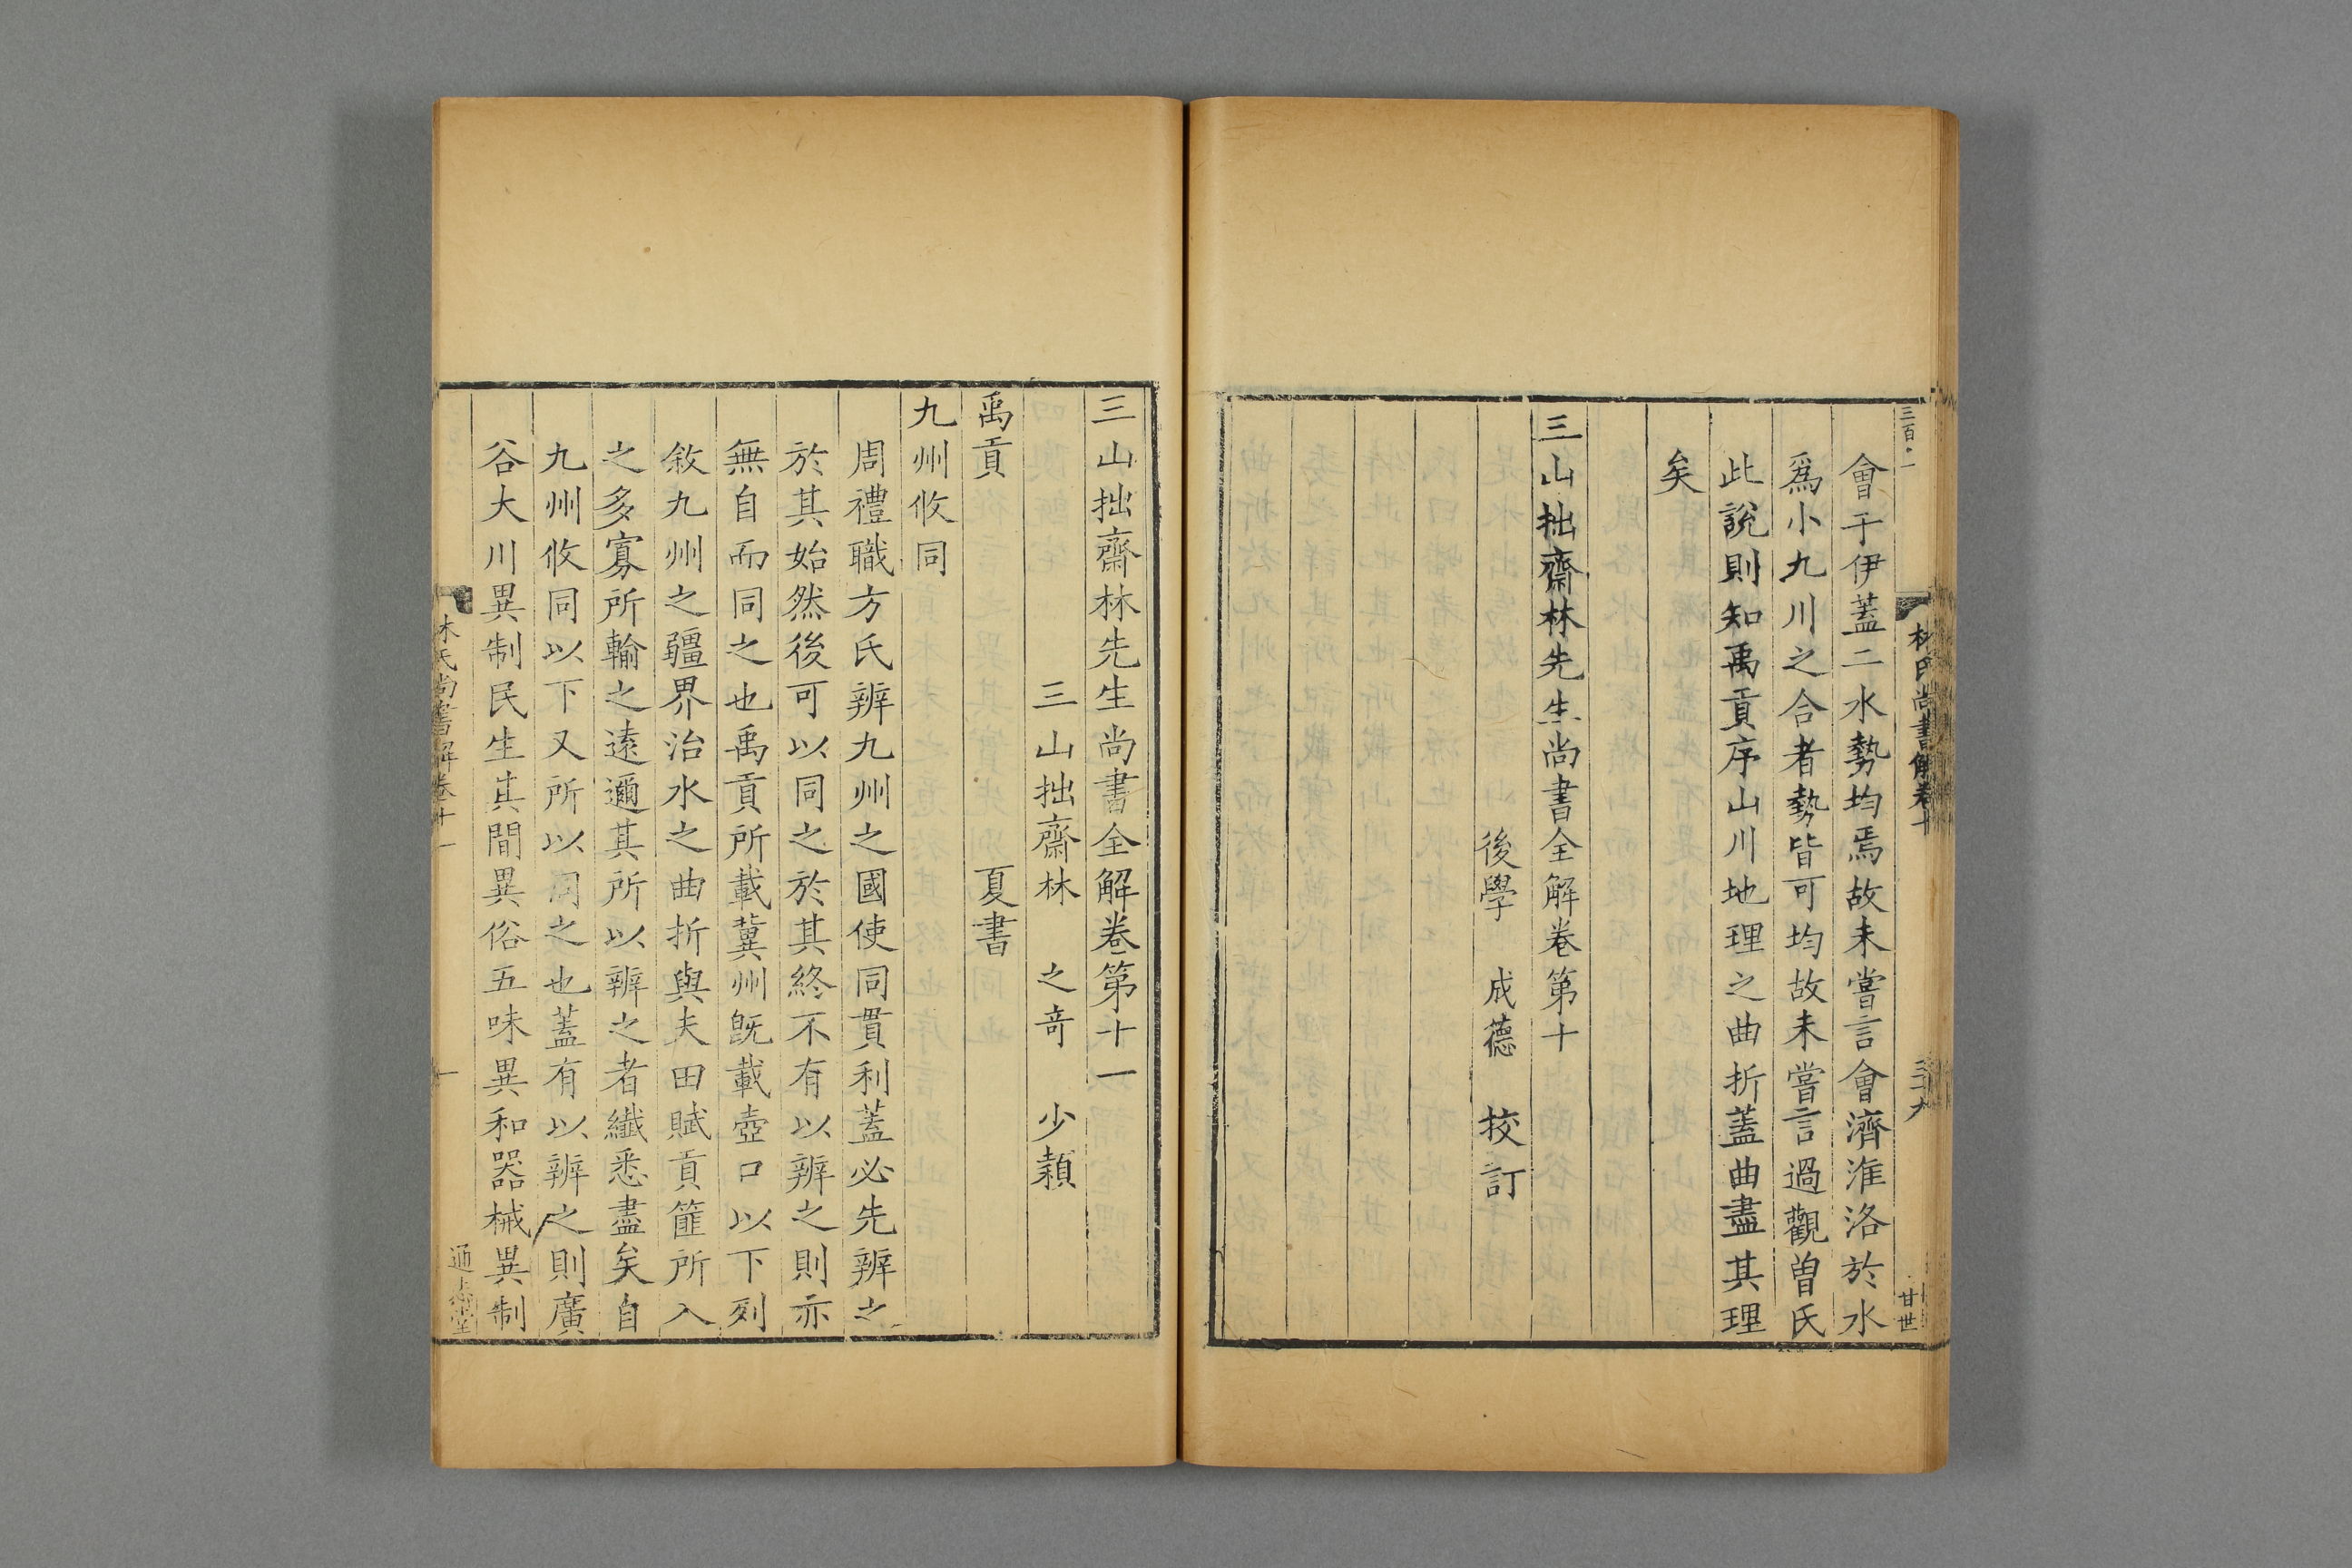 三百•一
林氏尚書解卷十
三十九
甘世
會于伊蓋二水勢均焉故未嘗言會濟淮洛於水
爲小九川之合者勢皆可均故未嘗言過觀曾氏
此說則知禹貢序山川地理之曲折蓋曲盡其理
矣
三山拙齋林先生尚書全解卷第十
後學 成德 校訂
三山拙齋林先生尚書全解卷第十一
三山拙齋林 之奇 少穎
禹貢 夏書
九州攸同
周禮職方氏辨九州之國使同貫利蓋必先辨之
於其始然後可以同之於其終不有以辨之則亦
無自而同之也禹貢所載冀州旣載壺口以下列
敘九州之疆界治水之曲折與夫田賦貢篚所入
之多寡所輸之遠邇其所以辨之者纖悉盡矣自
九州攸同以下又所以同之也蓋有以辨之則廣
谷大川異制民生其間異俗五味異和器械異制
林氏尚書解卷十一
一
通志堂